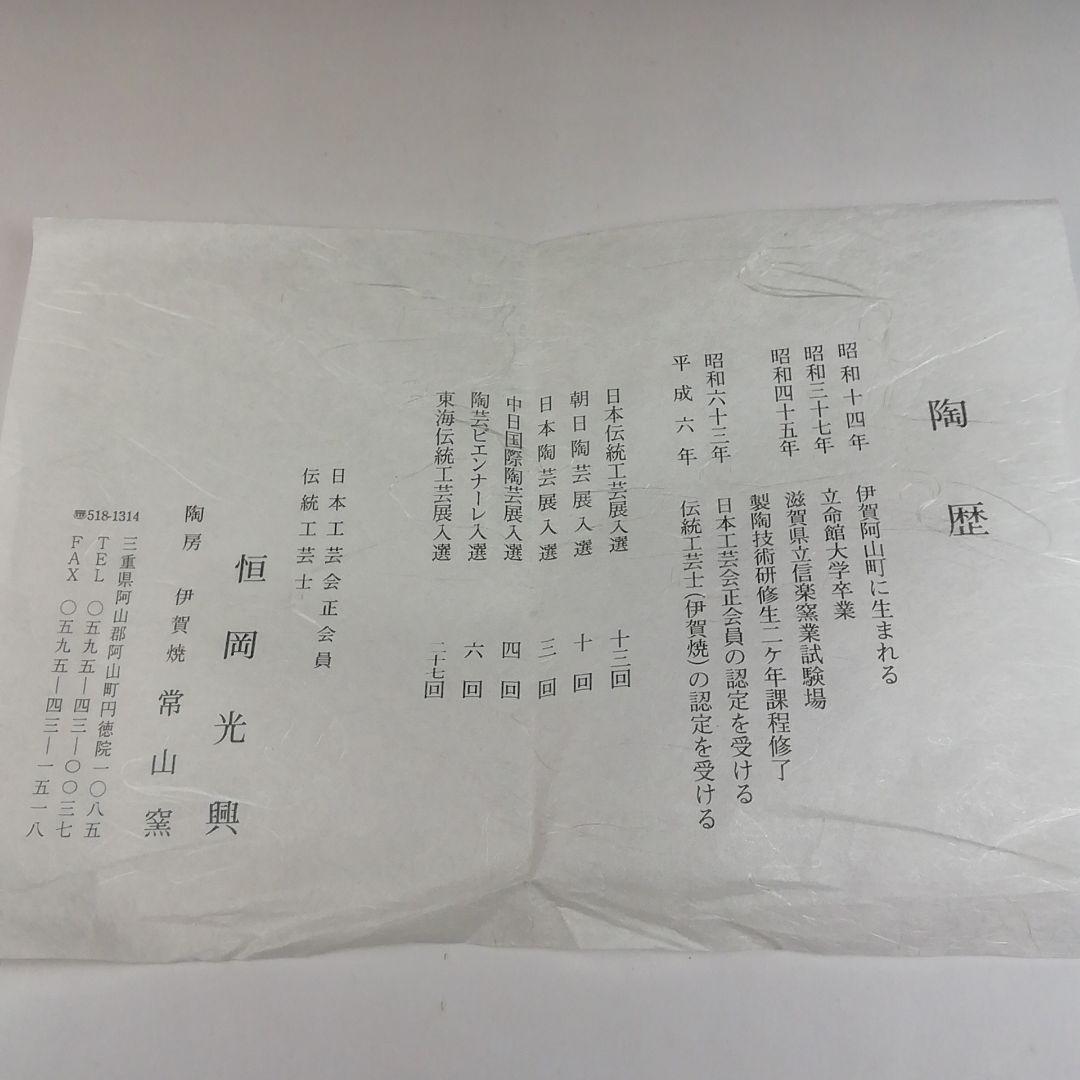 陶歴
昭和十四年 伊賀阿山町に生まれる
昭和三十七年 立命館大学卒業
昭和四十五年 滋賀県立信楽窯業試験場
製陶技術研修生二ケ年課程修了
昭和六十三年 日本工芸会正会員の認定を受ける
平成六年 伝統工芸士(伊賀焼)の認定を受ける
日本伝統工芸展入選 十三回
朝日陶芸展入選 十回
日本陶芸展入選 三回
中日国際陶芸展入選 四回
陶芸ビエンナーレ入選 六回
東海伝統工芸展入選 二十七回
日本工芸会正会員
伝統工芸士
恒岡光興
陶房 伊賀焼 常山窯
〠518-1314
三重県阿山郡阿山町円徳院一〇八五
TEL 〇五九五―四三―〇〇三七
FAX 〇五九五―四三―一五一八